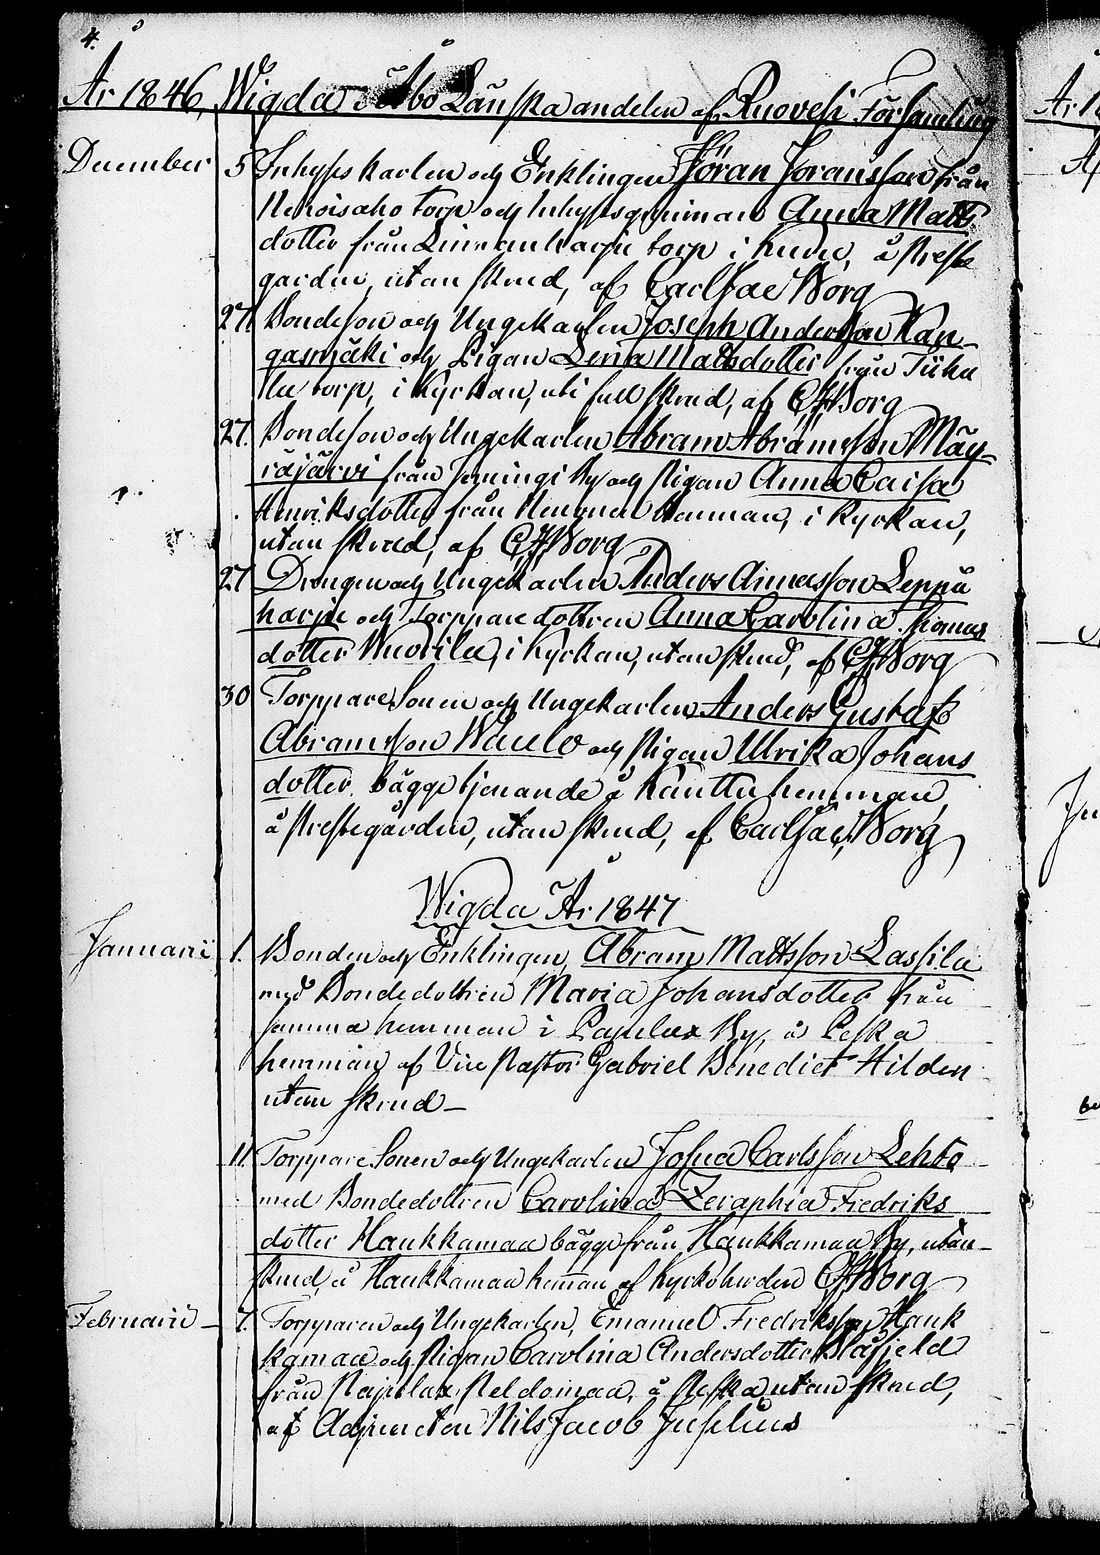 4.
År 1846, Wigda i Åbo Länska andelen af Ruovesi Församling
December 5 Inhyses karlen och Enklingen Jöran Joransson från
torp och Inhyses qvinnan Anna Matts
dotter från torp i Kuru, å Prest
gården, utan skrud, af Carl Borg
27. Bondeson och Ungekarlen Joseph Andersson Kan-
gasmäki och Pigan Lena Mattsdotter från
torp, i Kyrkan, uti full skrud, af CJBorg
27. Bondeson och Ungekarlen Abram Abramsson Mäy-
räjärvi från by och Pigan Anna Caisa
Henriksdotter från hemman, i Kyrkan,
utan skrud, af CJBorg
27 Drengen och Ungekarlen Anders Leppä
harju och Torppare dottren Anna Carolina Thomas
dotter Wuorila, i Kyrkan, utan skrud, af CJBorg
30 Torppare Sonen och Ungekarlen Anders Gustaf
Abramsson och Pigan Ulrika Johans
dotter, bägge tjenande å Känttu hemman,
å Prestegården, utan skrud, af Carl Borg
Wigda År 1847
Januarii 1. Bonden och Enklingen, Abram Mattsson Lassila
med Bondedottren Maria Johansdotter från
samma hemman i By, å Peska
hemman af Vice Pastor Gabriel Benedict Hilden
utan skrud_
11. Torppare Sonen och Ungekarlen Josua Carlsson Lehto
med Bondedottren Carolina Zeraphia Fredriks
dotter Haukkamaa bägge från Haukkamaa By, utan
skrud, å Haukkamaa heman af Kyrkoherden CJBorg
Februarii 7. Torpparen och Ungekarlen, Emanuel Fredriksson Hauk
kamaa och Pigan Carolina Andersdotter Blåfjeld
från Peldomaa, å Peska utan skrud,
af Adjuncten Nils Jacob Juselius